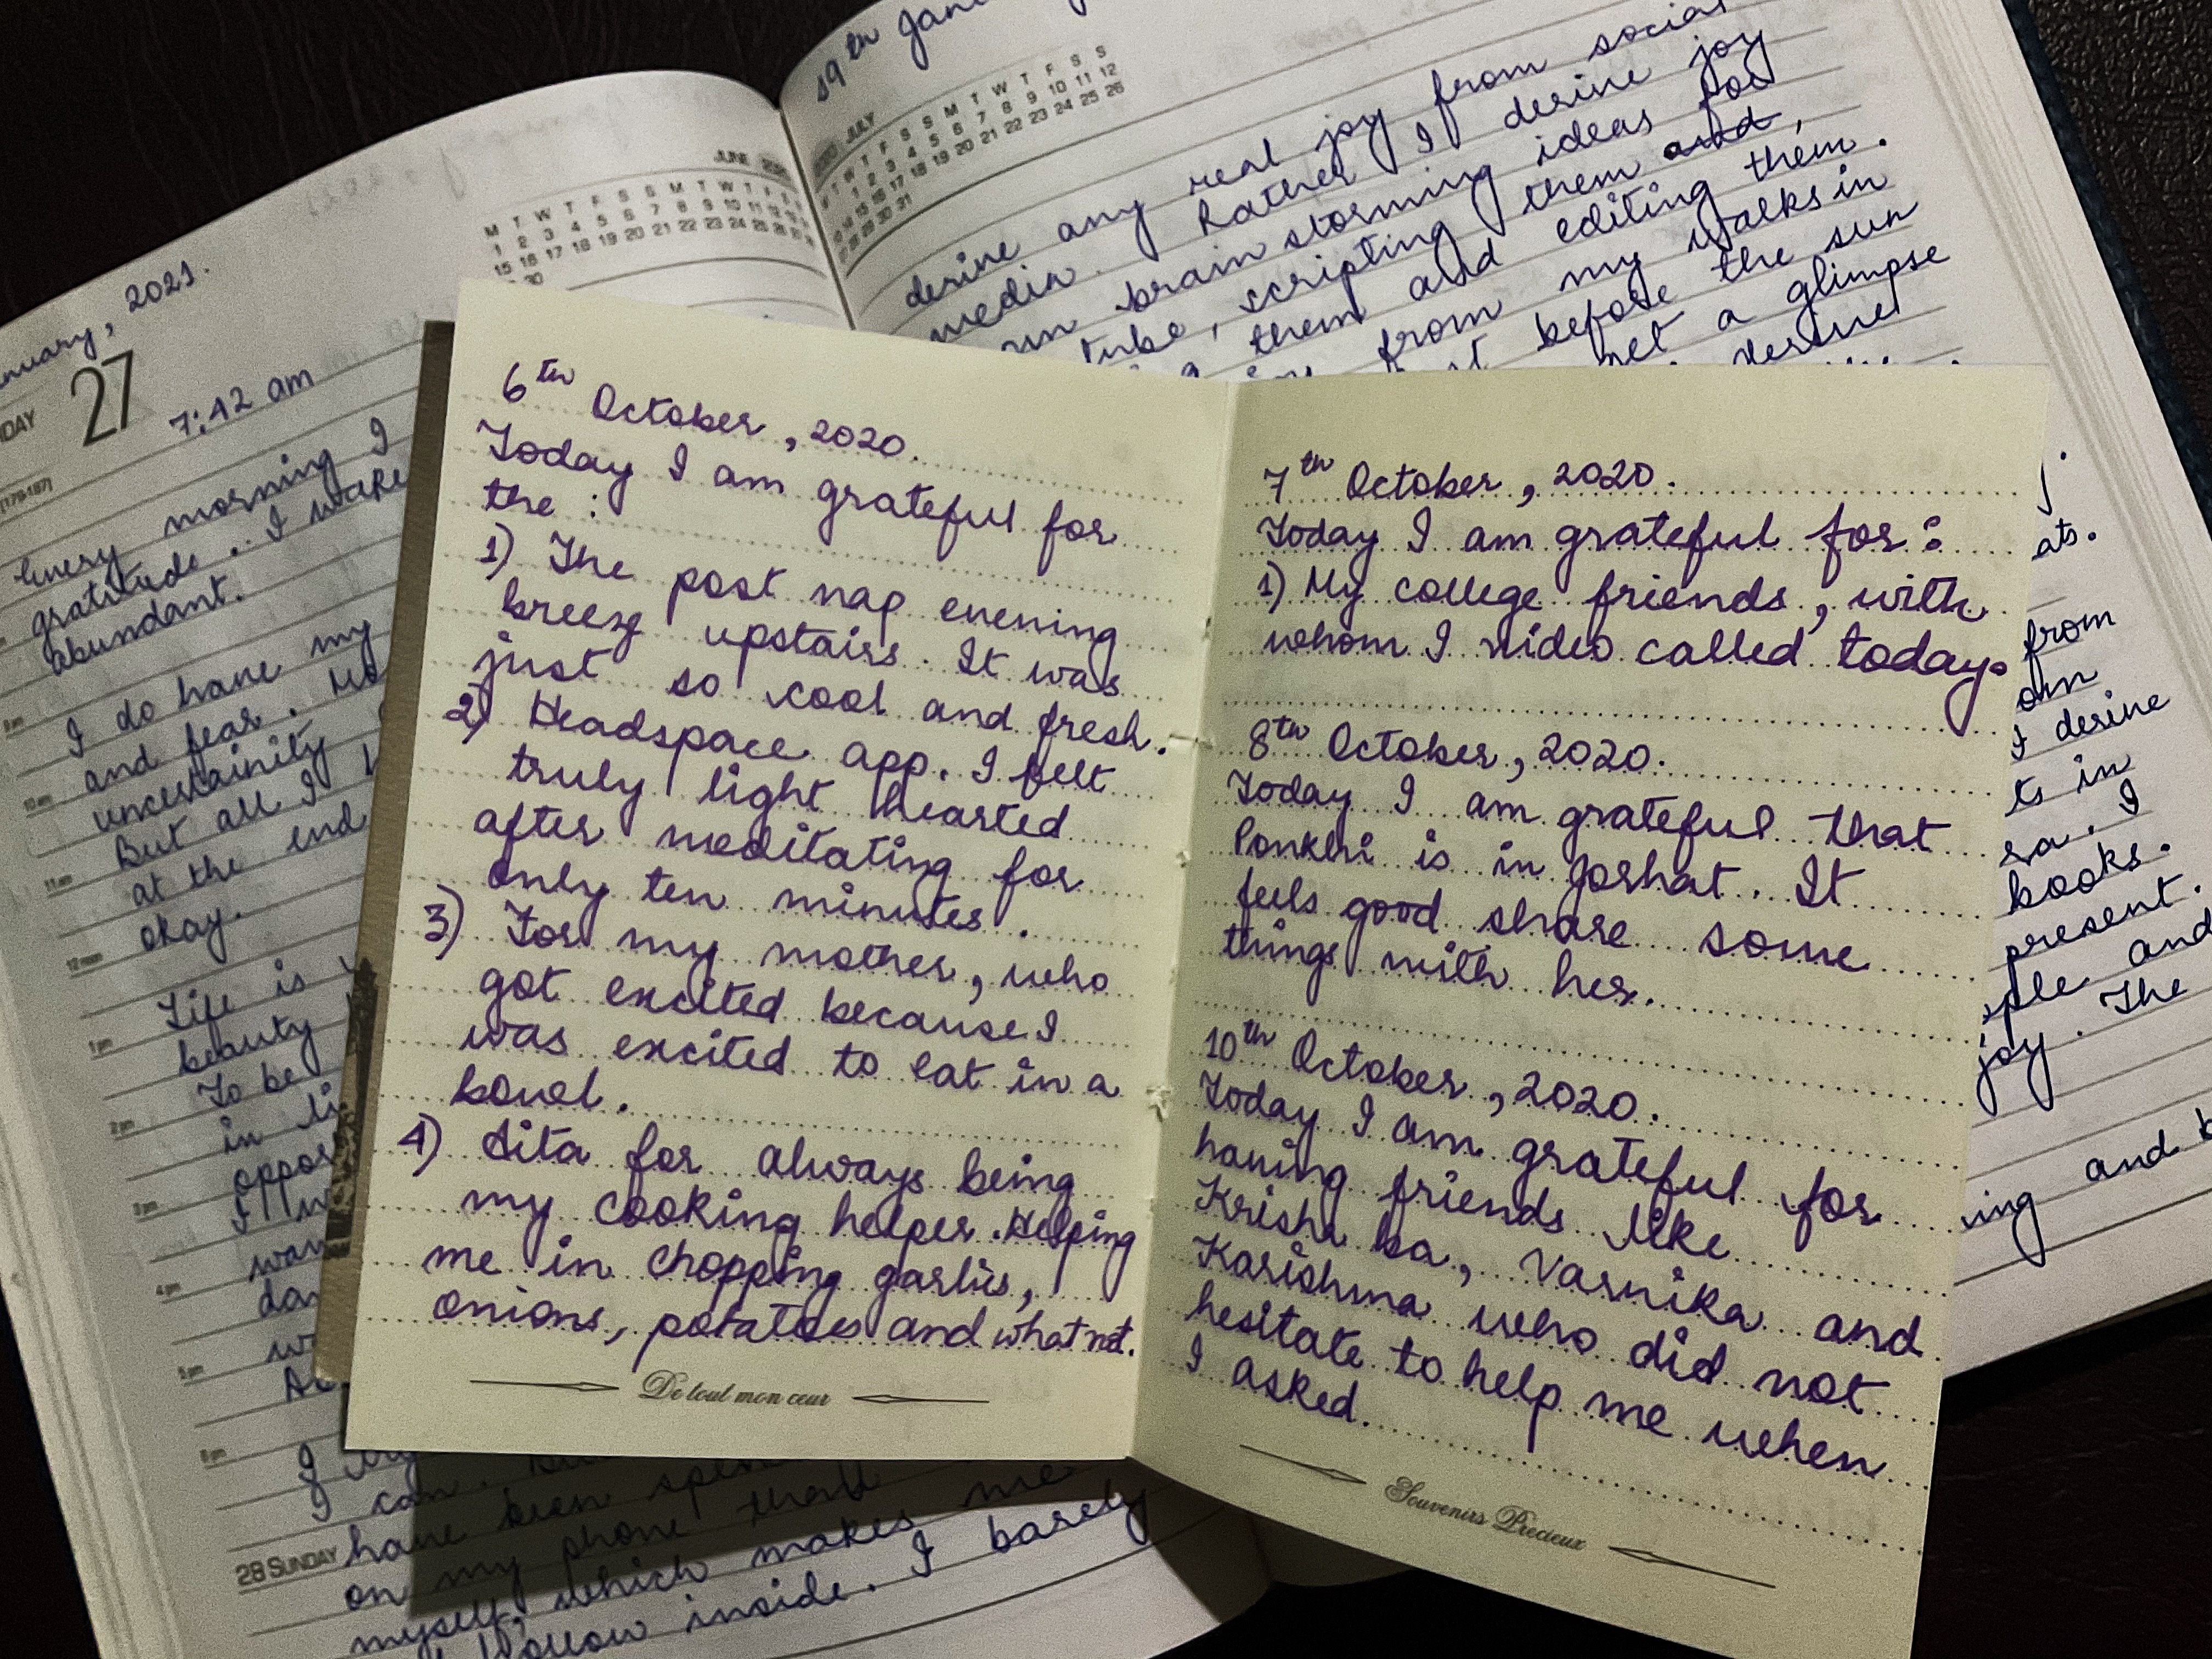 6th October, 2020.
Today I am grateful for
the :
1) The post nap evening
breeze upstairs. It was
just so cool and fresh.
2) Headspace app. I felt
truly light hearted
after meditating for
only ten minutes.
3) For my mother, who
got excited because I
was excited to eat in a
bowel.
4) Sita for always being
my cooking helper. Helping
me in chopping garlics,
onions, potatoes and what not.
De tout mon cœur
7th October, 2020.
Today I am grateful for :
1) My college friends, with
whom I video called today.
8th October, 2020.
Today I am grateful that
Ponkhi is in Jorhat. It
feels good share some
things with her.
10th October, 2020.
Today I am grateful for
having friends like
Krishn ba, Varnika and
Karishma who did not
hesitate to help me when
I asked.
Souvenirs Précieux
nuary, 2021.
27
7:42 am
JUNE
M T W T F S S M T W T F
1 2 3 4 5 6 7 8 9 10 11 12
15 16 17 18 19 20 21 22 23 24 25 26
30
Every morning I
gratitude. I wake
abundant.
I do have my
and fear.
uncertainity
But all I
at the end
okay.
Life is
beauty
To be
in li
oppor
I w
wan
da
I can.
have been
on my phone that
myself, which makes me
hollow inside. I barely
28 SUNDAY
9 am
10 am
11 am
12 noon
1 pm
2 pm
3 pm
4 pm
5 pm
6 pm
19th Jan
JULY
T W T F S S M T W T F S S
1 2 3 4 5 6 7 8 9 10 11 12
14 15 16 17 18 19 20 21 22 23 24 25 26
28 29 30 31
derive any real joy from social
media. Rather I derive joy
brain storming ideas for
Tube, scripting them and,
them and editing them.
from my walks in
before the sun
get a glimpse
derive
ats.
from
I derive
ts in
I
books.
present.
ple and
joy. The
ing and b